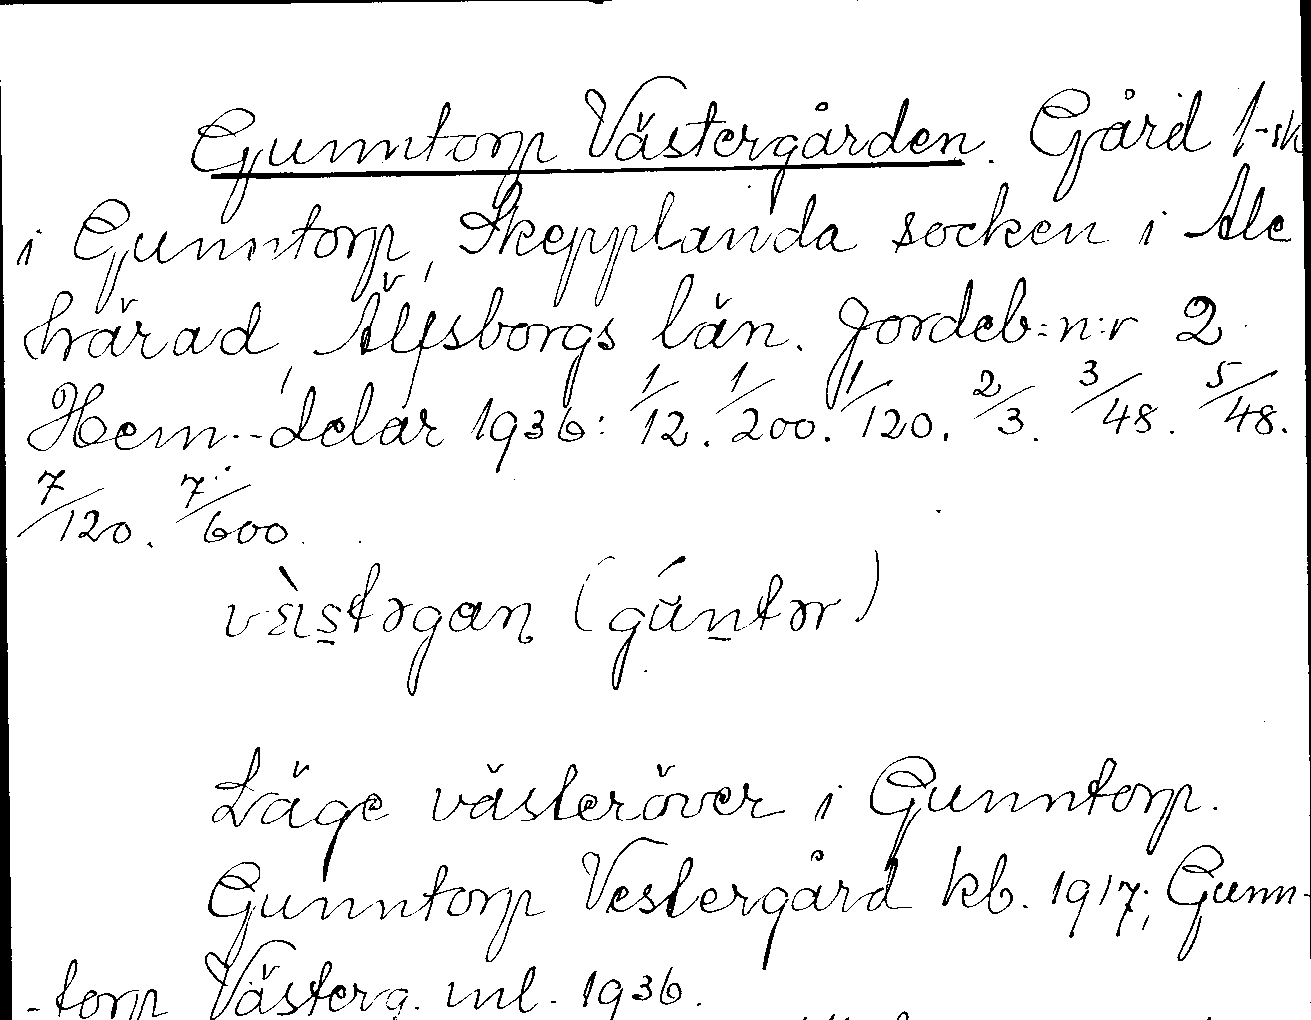 Gunntorp Västergården. Gård 1-sk
i Gunntorp, Skepplanda socken i Ale
härad, Älfsborgs län. Jordeb:n:r 2
Hem.-delar 1936: 1/12. 1/200. 1/120. 2/3. 3/48. 5/48.
7/120. 7/600.
(gúntər)
Läge västeröver i Gunntorp.
Gunntorp Vestergård kb. 1917; Gunn-
-torp Västerg. ml. 1936.